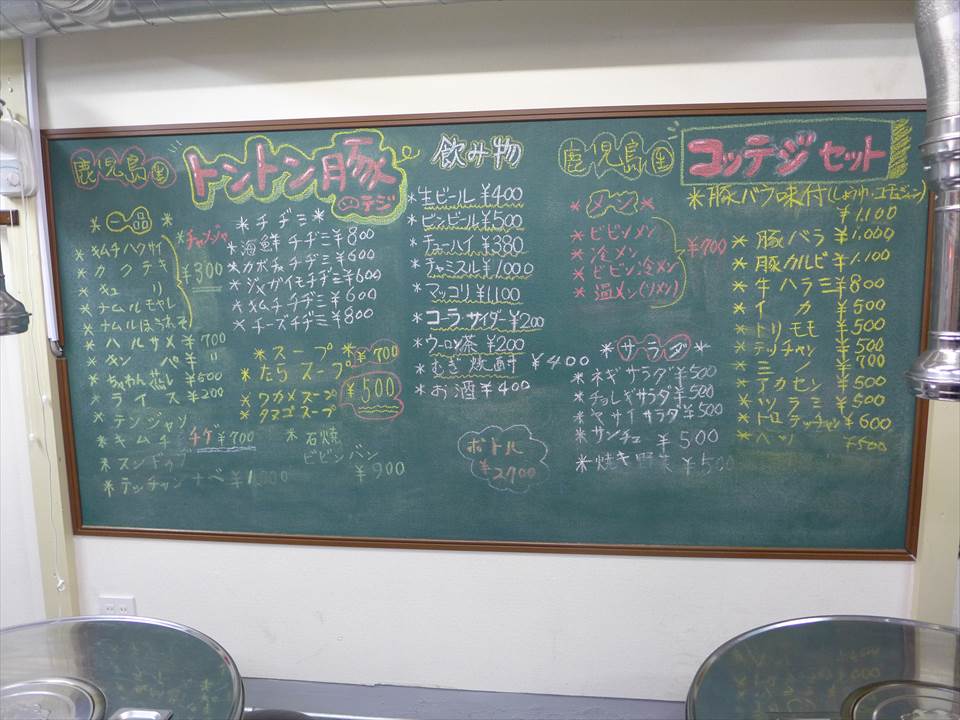 鹿児島産
トントン豚
のテジ
＊一品＊
＊キムチハクサイ
＊カクテキ
＊キュリ
＊ナムルモヤシ
＊ナムルほうれんそ
¥300
＊チャンジャ
＊ハルサメ ¥700
＊チャンパ ¥ 〃
＊ちゃわん蒸し ¥500
＊ライス ¥200
＊テンジャン
＊キムチ
＊スンドゥブ
チゲ ¥700
＊テッチャンナベ
＊チヂミ＊
＊海鮮チヂミ ¥800
＊カボチャチヂミ ¥600
＊ジャガイモチヂミ ¥600
＊キムチチヂミ ¥600
＊チーズチヂミ ¥800
＊スープ＊
＊たらスープ ¥700
＊ワカメスープ
＊タマゴスープ
¥500
＊石焼
ビビンバン
¥900
飲み物
＊生ビール ¥400
＊ビンビール ¥500
＊チューハイ ¥380
＊チャミスル ¥1000
＊マッコリ ¥1100
＊コーラ・サイダー ¥200
＊ウーロン茶 ¥200
＊むぎ焼酎 ¥400
＊お酒 ¥400
ボトル
¥2700
鹿児島産
コッテジセット
＊メン＊
＊ビビンメン
＊冷メン
＊ビビン冷メン
＊温メン(ソメン)
¥700
＊サラダ＊
＊ネギサラダ ¥500
＊チョレギサラダ ¥500
＊ヤサイサラダ ¥500
＊サンチュ ¥500
＊焼き野菜 ¥500
＊豚バラ味付
¥1,100
＊豚バラ ¥1,000
＊豚カルビ ¥1,100
＊牛ハラミ ¥800
＊イカ ¥500
＊トリモモ ¥500
＊テッチャン ¥500
＊ミノ ¥700
＊アカセン ¥500
＊ツラミ ¥500
＊トロテッチャン ¥600
＊ハツ ¥500